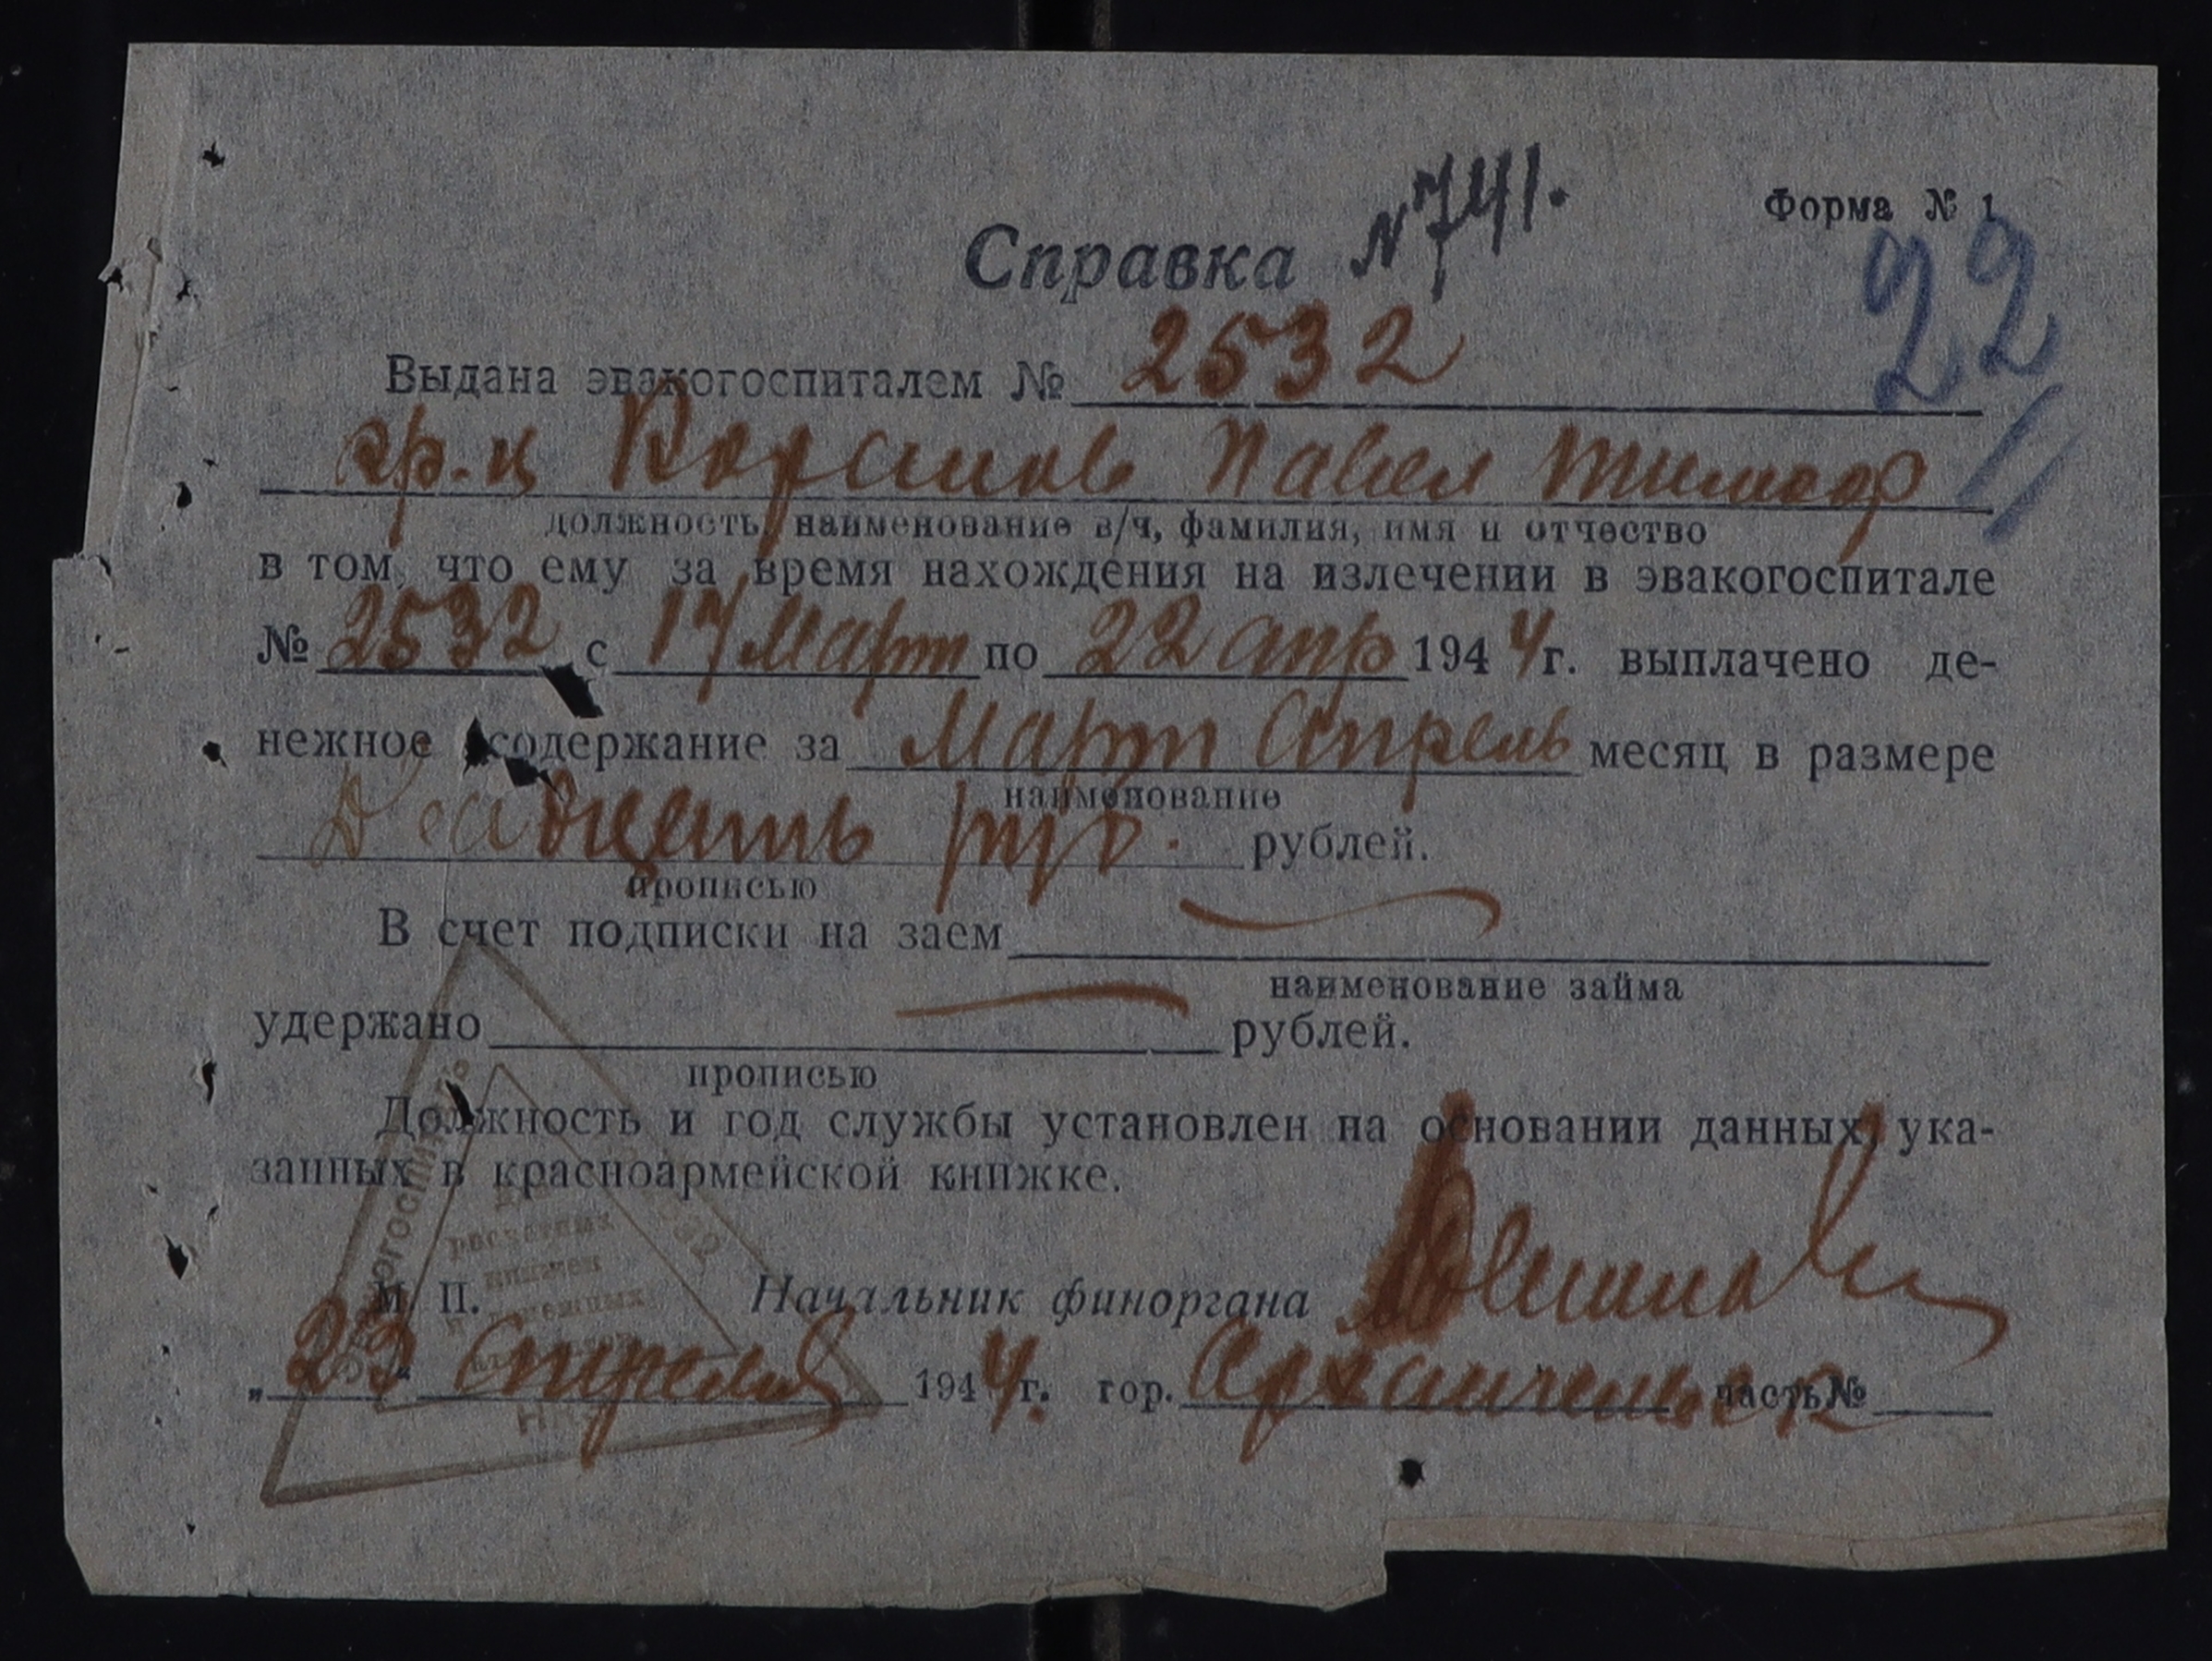 Форма № 1
Справка № 741.
22
Выдана эвакогоспиталем № 2532
кр-ц Корсаков Павел Тимофор
должность, наименование в/ч, фамилия, имя и отчество
в том, что ему за время нахождения на излечении в эвакогоспитале
№ 2532 с 17 Март по 22 апр 1944 г. выплачено де-
нежное содержание за Март Апрель месяц в размере
наименование
Двадцать руб. рублей.
прописью
В счет подписки на заем
наименование займа
удержано рублей.
прописью
Должность и год службы установлен на основании данных, ука-
занных в красноармейской книжке.
М. П. Начальник финоргана
„23“ Апреля 1944 г. гор. Архангельск часть №